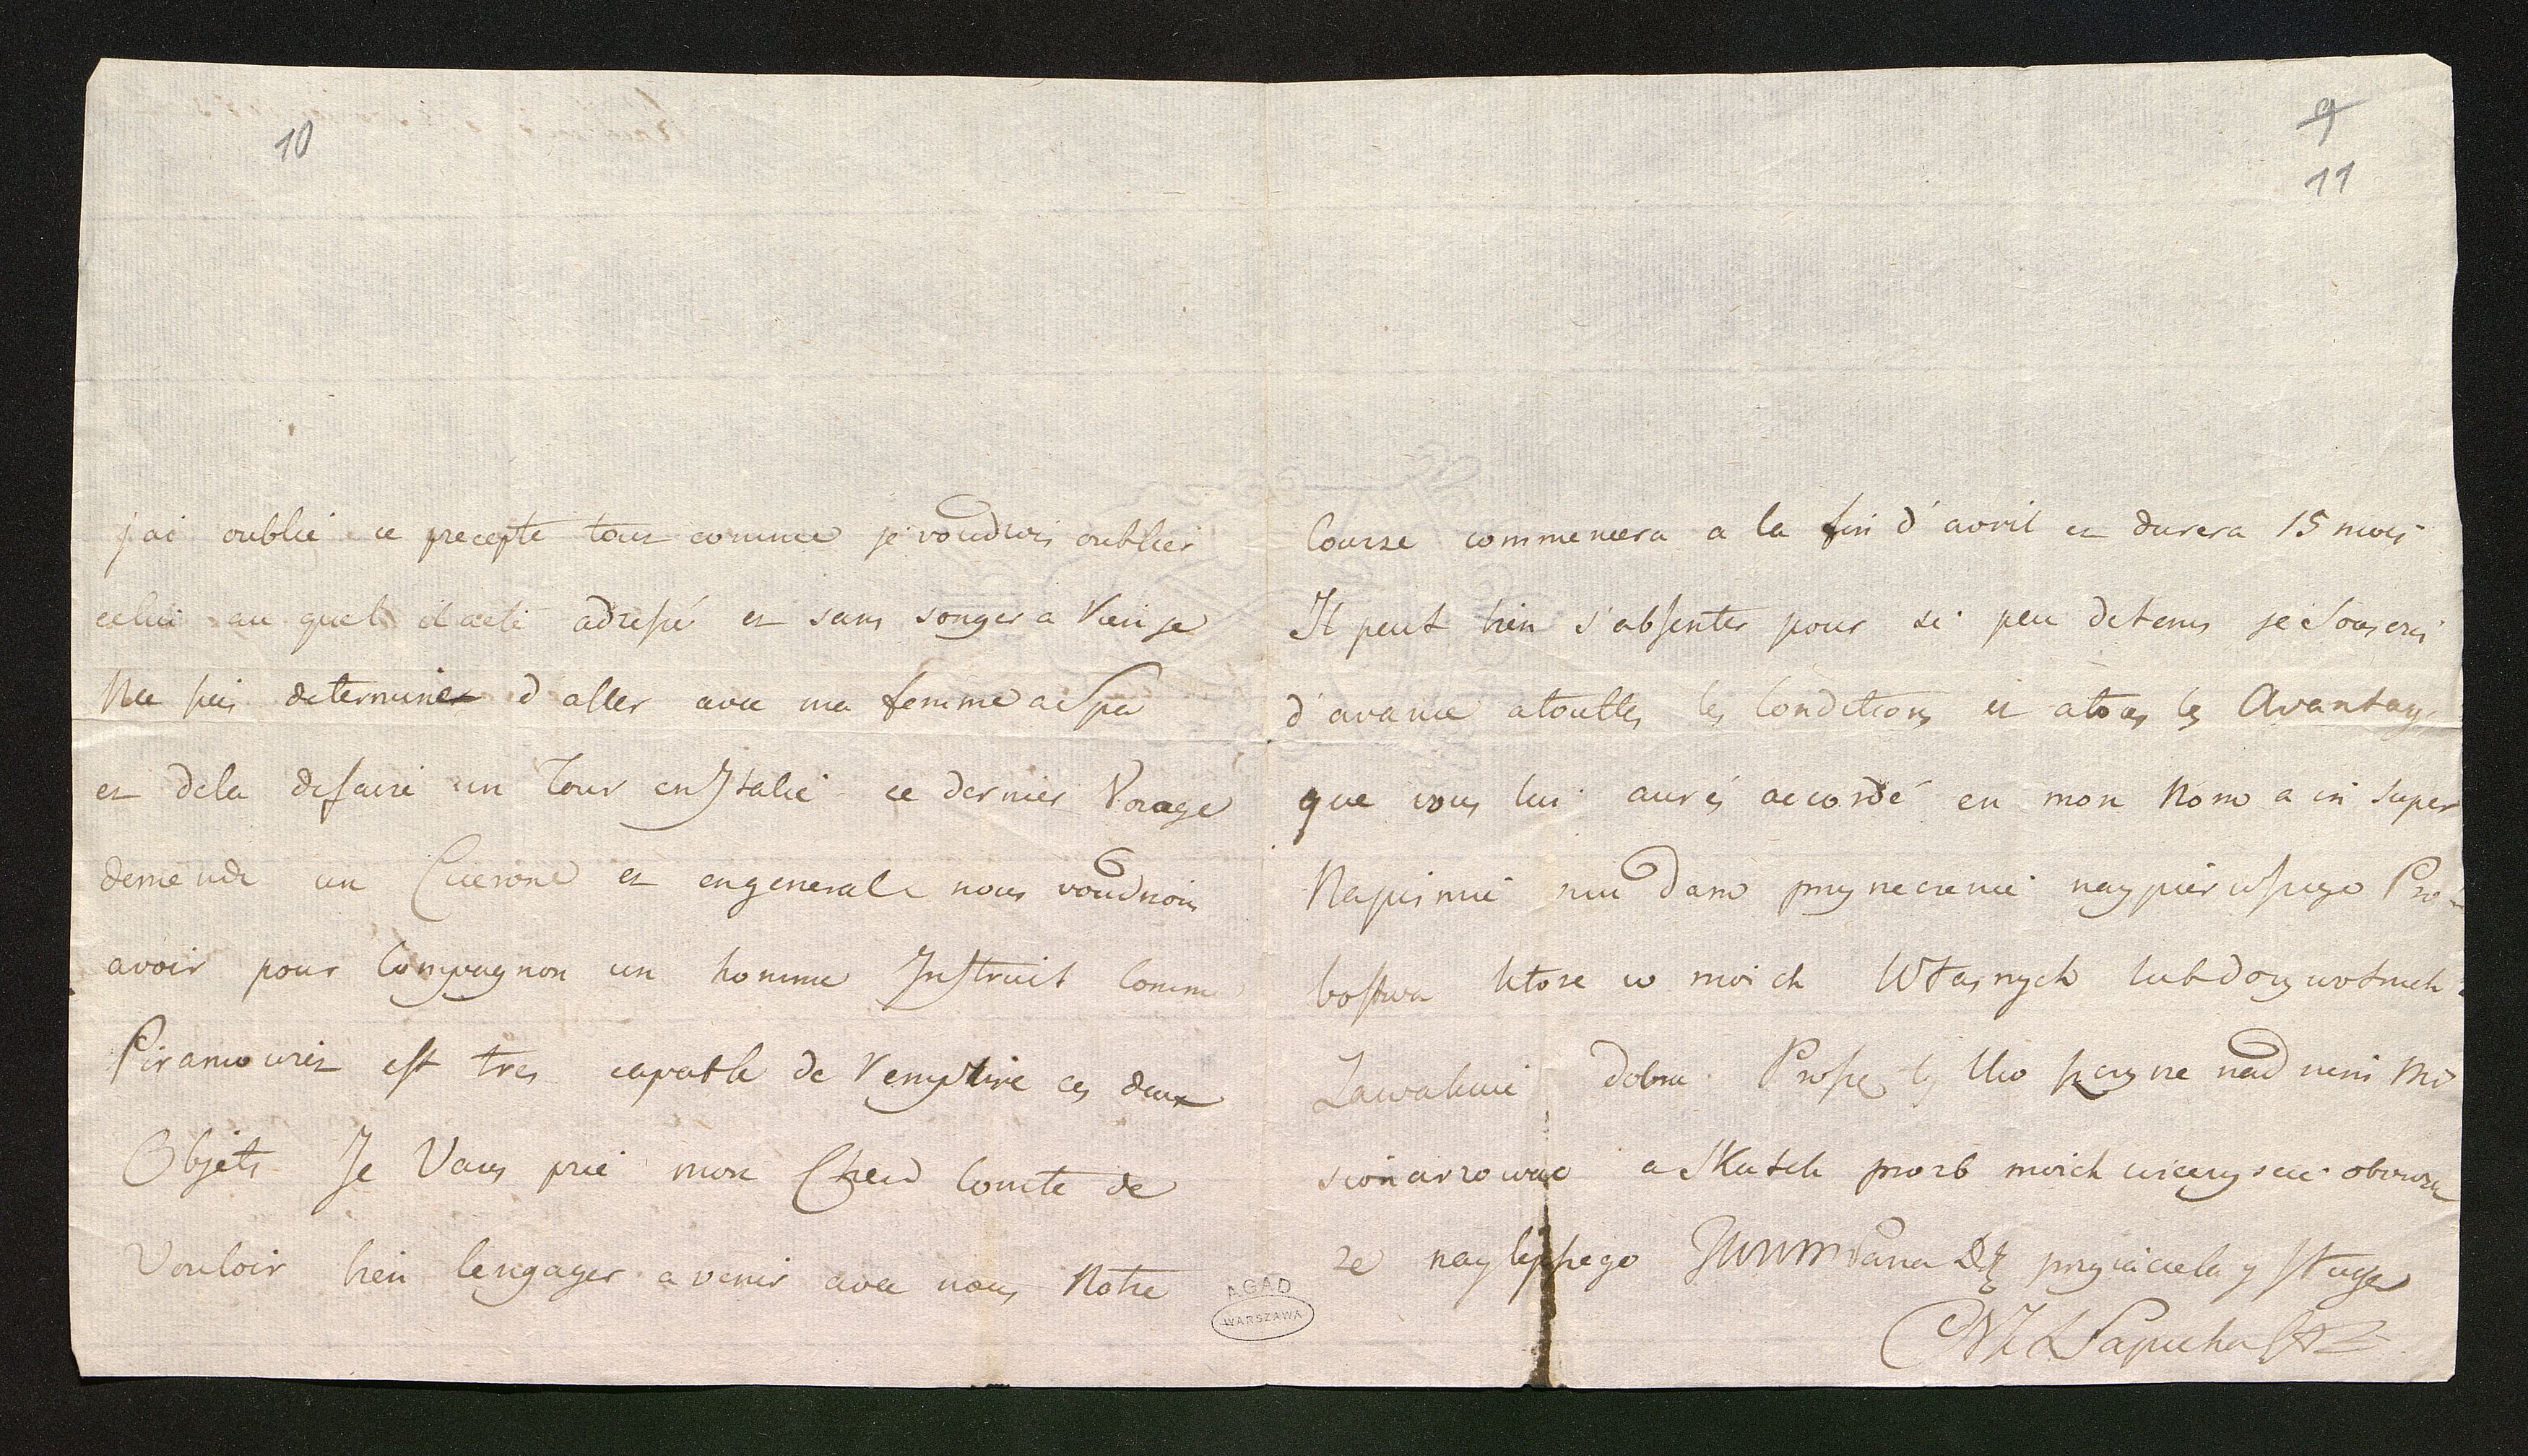 10
j'ai oublié ce precepte tout comme je voudrois oublier
celui au quel il a eté adressé et sans songer a rien je
me suis determiner d aller avec ma femme a Spa
et dela defaire un Tour en Italie ce dernier Voiage
demende un Cicerone et en generale nous voudrions
avoir pour Compagnon un homme Instruit Comm
Piramowiz est tres capable de remplire ces deux
Objets Je Vous prie mon Cher Comte de
Vouloir bien lengager a venir avec nous Notre
AGAD
WARSZAWA
9
11
Course commencera a la fin d'avril et durera 15 mois
Il peut bien s'absenter pour si peu detems je Souscris
d'avance atouttes les Conditions et atous les Avantag
que vous lui aurés accordé en mon Nom a in super
Napismie mu dam przyreczenie naypierwszego Pro-
bostwa ktore w moich Własnych lub dozywotnich
Zawakuie dobra Proszę
sionarzowac a Skutek prozb moich
ze naylepszego JWWM Pana przyiaciela y sługe
Sapieha